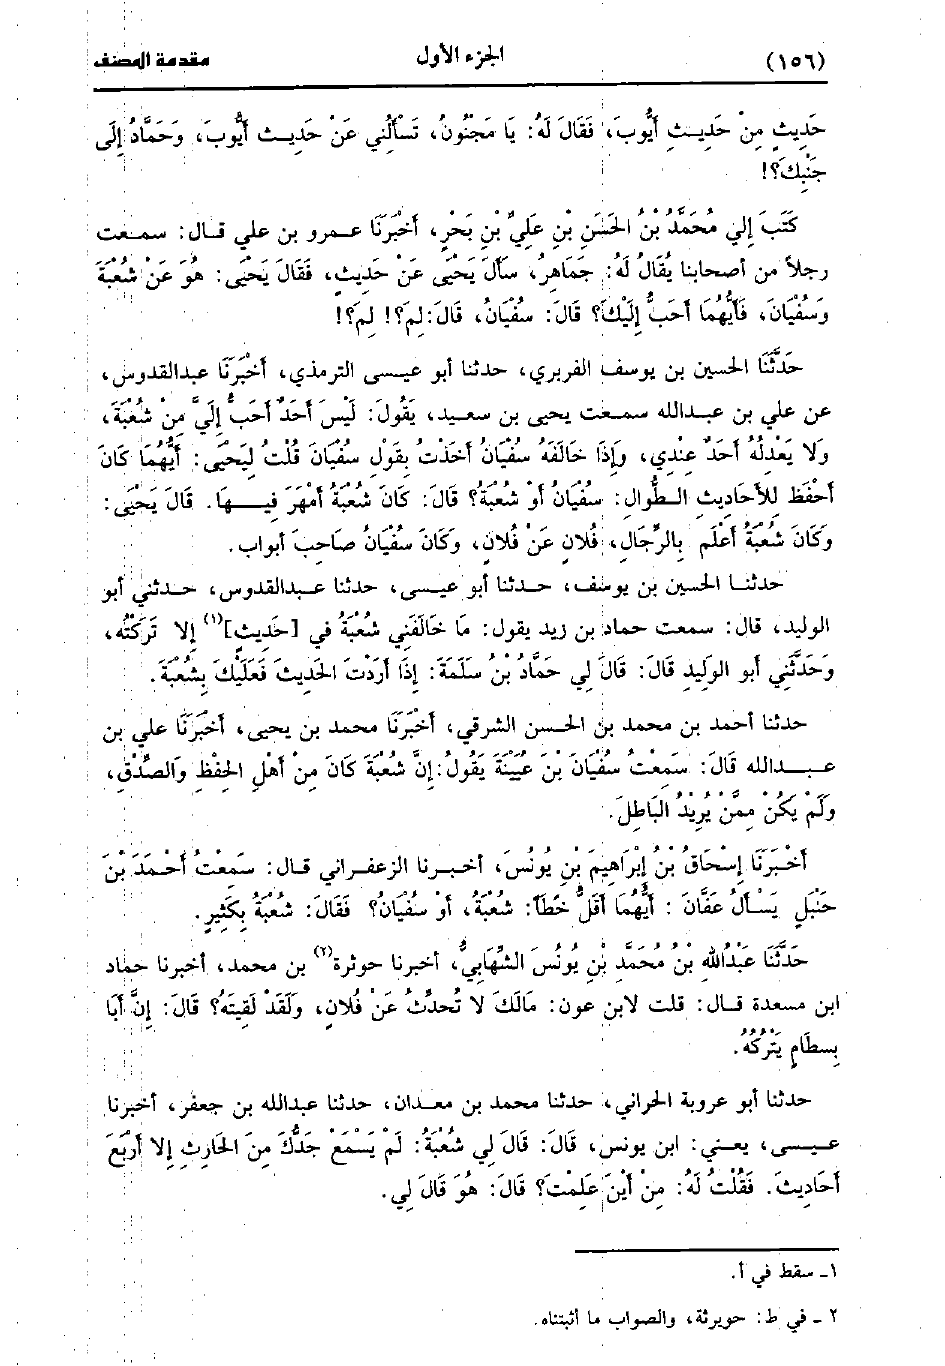 (١٥٦) الجزء الأول مقدمة المصنف
حَدِيثٍ مِنْ حَدِيثِ أَيُّوبَ، فَقَالَ لَهُ: يَا مَجْنُونُ، تَسْأَلُنِي عَنْ حَدِيث أَيُّوبَ، وَحَمَّادُ إِلَى
جَنْبِكَ؟!
كَتَبَ إِلي مُحَمَّدُ بْنُ الحَسَنِ بْنِ عَلِيِّ بْنِ بَحْرٍ، أَخْبَرَنَا عمرو بن علي قال: سمعت
رجلاً من أصحابنا يُقَالُ لَهُ: جَمَاهِرُ، سَأَلَ يَحْيَى عَنْ حَدِيثٍ، فَقَالَ يَحْيَى: هُوَ عَنْ شُعْبَةَ
وَسُفْيَانَ، فَأَيُّهُمَا أَحَبُّ إِلَيْكَ؟ قَالَ: سُفْيَانُ، قَالَ: لِمَ؟! لِمَ؟!
حَدَّثَنَا الحسين بن يوسف الفربري، حدثنا أبو عيسى الترمذي، أَخْبَرَنَا عبدالقدوس،
عن علي بن عبدالله سمعت يحيى بن سعيد، يَقُولُ: لَيْسَ أَحَدٌ أَحَبُّ إِلَيَّ مِنْ شُعْبَةَ،
وَلا يَعْدِلُهُ أَحَدٌ عِنْدِي، وَإِذَا خَالَفَهُ سُفْيَانُ أَخَذْتُ بِقَوْلِ سُفْيَانَ قُلْتُ لِيَحْيَى: أَيُّهُمَا كَانَ
أَحْفَظَ لِلأَحَادِيث الطُّوال: سُفْيَانُ أَوْ شُعْبَةُ؟ قَالَ: كَانَ شُعْبَةُ أَمْهَرَ فِيهَا. قَالَ يَحْيَى:
وَكَانَ شُعْبَةُ أَعْلَم بِالرِّجَالِ، فُلان عَنْ فُلانٍ، وَكَانَ سُفْيَانُ صَاحِبَ أبواب.
حدثنا الحسين بن يوسف، حدثنا أبو عيسى، حدثنا عبدالقدوس، حدثني أبو
الوليد، قال: سمعت حماد بن زيد يقول: مَا خَالَفَنِي شُعْبَةُ فِي [حَدِيثٍ](١) إِلا تَرَكْتُه،
وَحَدَّثَنِي أبو الوَلِيدِ قَالَ: قَالَ لِي حَمَّادُ بْنُ سَلَمَةَ: إِذَا أَرَدْتَ الحَدِيثَ فَعَلَيْكَ بِشُعْبَةَ.
حدثنا أحمد بن محمد بن الحسن الشرقي، أَخْبَرَنَا محمد بن يحيى، أَخْبَرَنَا علي بن
عبدالله قَالَ: سَمَعْتُ سُفْيَانَ بْنَ عُيَيْنَةَ يَقُولُ: إِنَّ شُعْبَةَ كَانَ مِنْ أَهْلِ الحِفْظِ وَالصِّدْقِ،
وَلَمْ يَكُنْ مِمَّنْ يُرِيدُ البَاطِلَ.
أَخْبَرَنَا إِسْحَاقُ بْنُ إِبْرَاهِيمَ بْنِ يُونُسَ، أخبرنا الزعفراني قال: سَمِعْتُ أَحْمَدَ بْنَ
حَنْبَلٍ يَسْأَلُ عَفَّانَ : أَيُّهُمَا أَقَلُّ خَطَأً: شُعْبَةُ، أَوْ سُفْيَانُ؟ فَقَالَ: شُعْبَةُ بِكَثِيرٍ.
حَدَّثَنَا عَبْدُاللهِ بْنُ مُحَمَّدِ بْنِ يُونُسَ الشِّهَابِيُّ، أخبرنا حوثرة(٢) بن محمد، أخبرنا حماد
ابن مسعدة قال: قلت لابن عون: مَالَكَ لا تُحَدِّثُ عَنْ فُلانٍ، وَلَقَدْ لَقِيتَهُ؟ قَالَ: إِنَّ أَبَا
بِسطَامٍ يَتْرُكُهُ.
حدثنا أبو عروبة الحراني، حدثنا محمد بن معدان، حدثنا عبدالله بن جعفر، أخبرنا
عيسى، يعني: ابن يونس، قَالَ: قَالَ لِي شُعْبَةُ: لَمْ يَسْمَعْ جَدُّكَ مِنَ الحَارِثِ إِلا أَرْبَعَ
أَحَادِيثَ. فَقُلْتُ لَهُ: مِنْ أَيْنَ عَلِمْتَ؟ قَالَ: هُوَ قَالَ لِي.
١ـ سقط في أ.
٢ ـ في ط: حويرثة، والصواب ما أثبتناه.